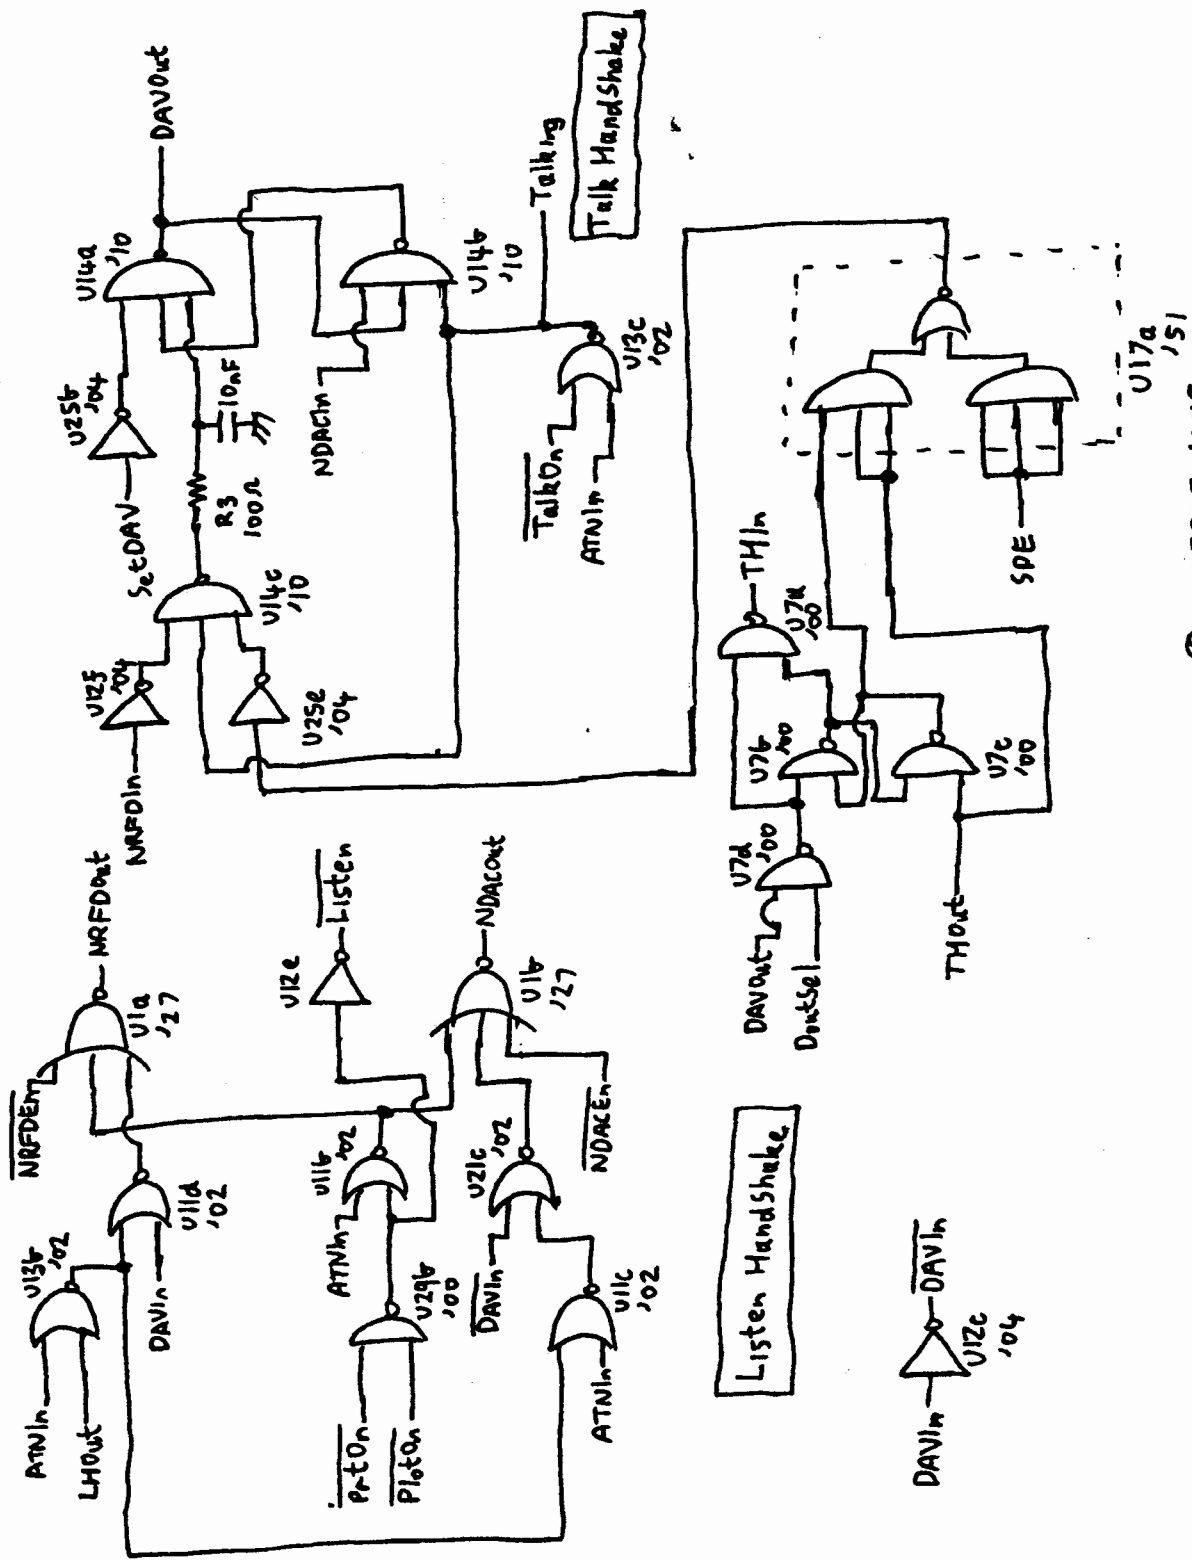 ATNIn
LHOut
U13b
'02
DAVIn
U11d
'02
NRFDEn
U1a
'27
NRFDOut
PrtOn
PlotOn
U29b
'00
ATNIn
U11b
'02
U12e
Listen
DAVIn
U21c
'02
ATNIn
U11c
'02
NDACEn
U1b
'27
NDACOut
Listen HandShake
DAVIn
U12c
'04
DAVIn
NRFDIn
U12f
'04
U25e
'04
U14c
'10
SetDAV
U25b
'04
R3
100Ω
10nF
U14a
'10
DAVOut
NDACIn
U14b
'10
TalkOn
ATNIn
U13c
'02
Talking
Talk HandShake
DAVOut
DoutSel
U7d
'00
U7b
'00
U7a
'00
THIn
THOut
U7c
'00
SPE
U17a
'51